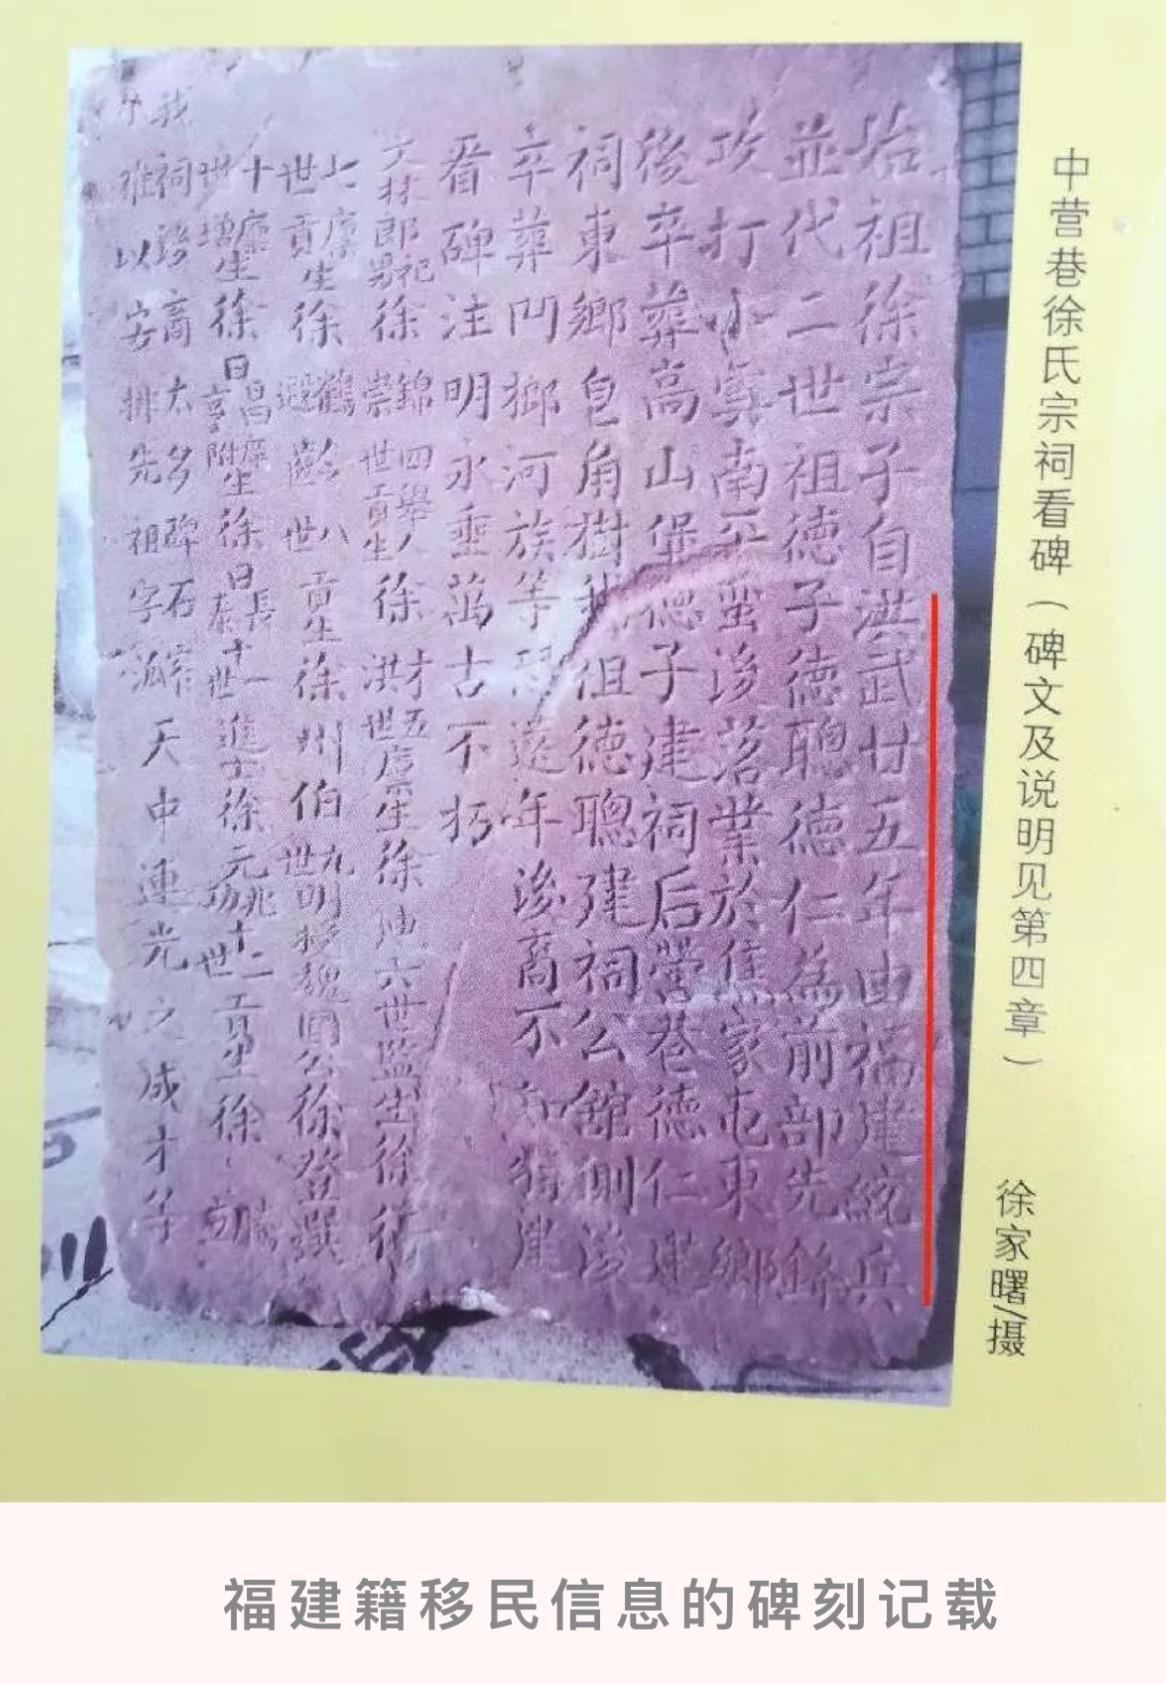 中营巷徐氏宗祠看碑（碑文及说明见第四章）
徐家曙/摄
始祖徐宗子自洪武廿五年由福建统兵
並代二世祖德子德聰德仁為前部先鋒
攻打小寘南平蛮後落業於焦家屯東鄉
後卒葬高山堡德子建祠后營巷德仁建
祠東鄉皂角樹我祖德聰建祠公舘側後
卒葬凹鄉河族等 遠年後裔不知 建
看碑注明永垂萬古不朽
文林郎 徐錦 四舉人 崇 世貢生 徐洪才 五世廩生徐 六世監生徐
七世廩貢生徐鶴齡 遐齡 八世貢生徐州伯 九世明 魏國公徐登選
十世廩增生徐日昌 日亨 庠附生徐日長 日泰 十一世進士徐元兆 十二世貢生徐
我祠後裔太多碑石窄
难以安排先祖字派
天中連光之成才字
福建籍移民信息的碑刻记载